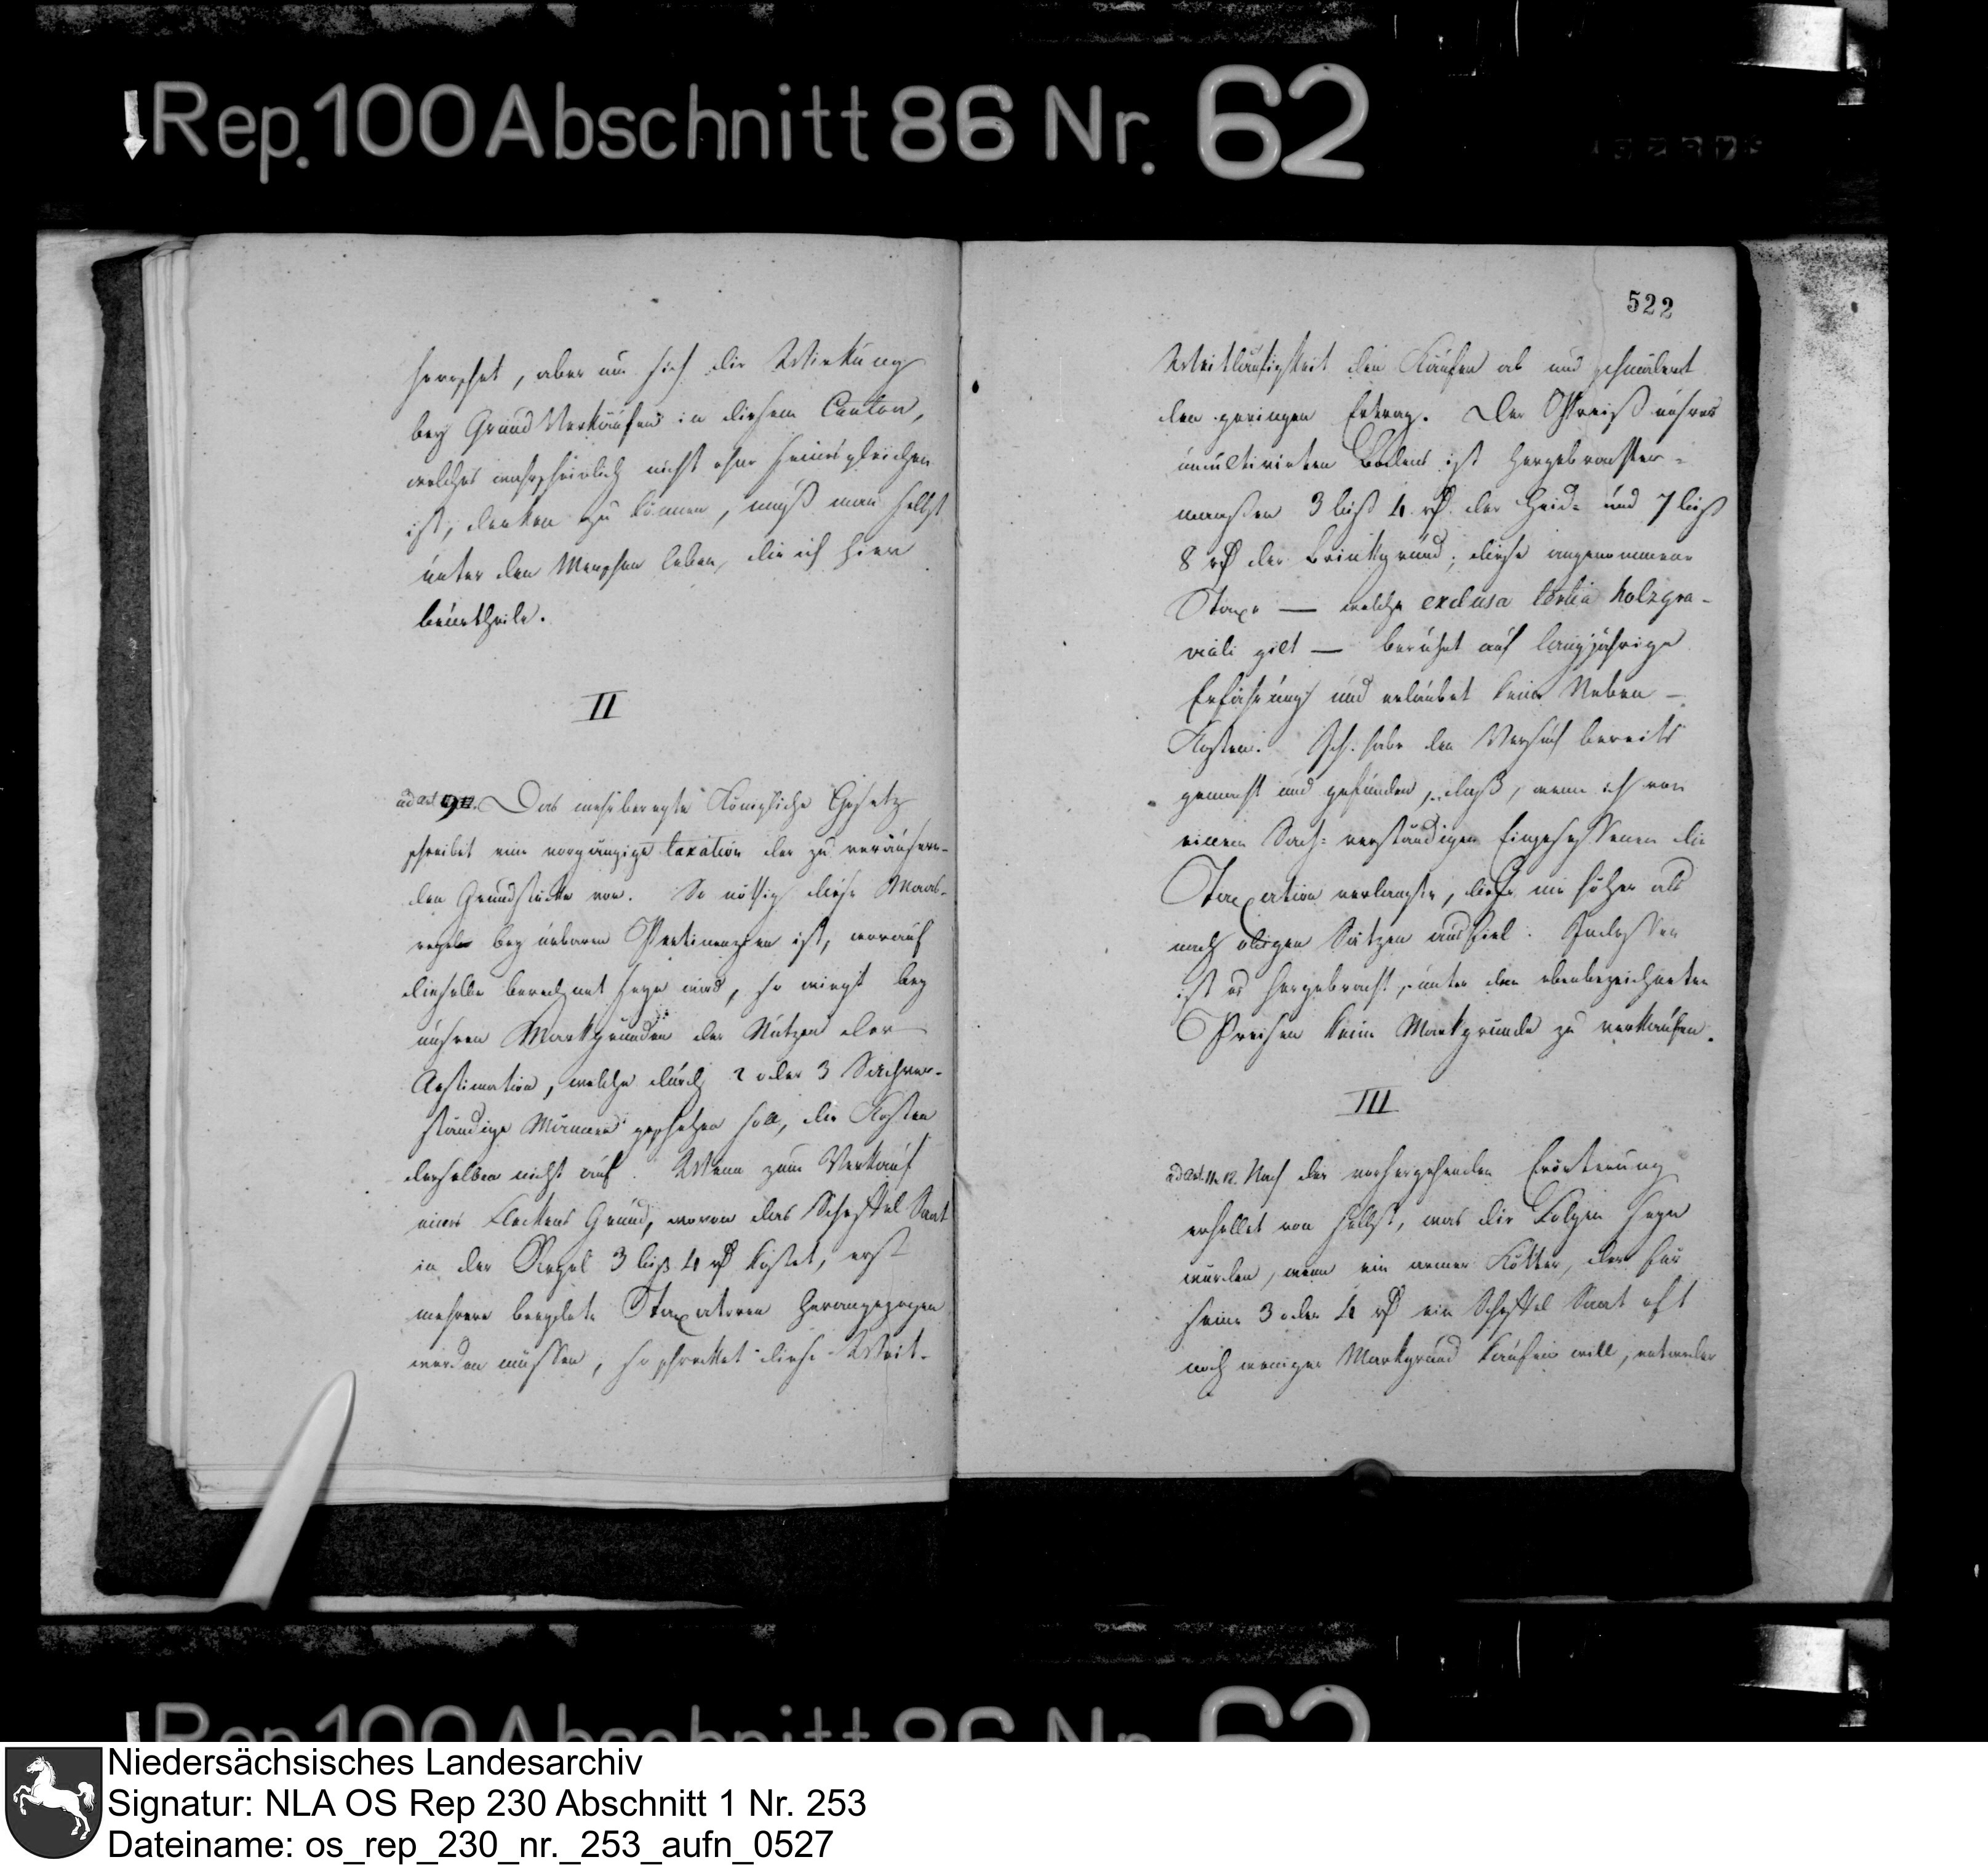 Rep. 100 Abschnitt 86 Nr. 62
herrschet, aber um sich die Wirkung
bey Grund Verkäufen in diesem Canton,
welches wahrscheinlich nicht ohne seines gleichen
ist, denken zu können, muß man selbst
unter den Menschen leben, die ich hier
beurtheile.
II
ad art. Das mehrberegte Königliche Gesetz
schreibt eine vorgängige taxation der zu veräußern-
den Grundstücke vor. So nöthig diese Maas-
regel bey urbaren Pertinenzien ist, worauf
dieselbe berechnet seyn wird, so wiegt bey
unsern Markgründen der Nutzen der
Aestimation, welche durch 2 oder 3 Sachver-
ständige Männer geschehen soll, die Kosten
derselben nicht auf. Wenn zum Verkauf
eines Fleckens Grund, wovon das Scheffel Saat
in der Regel 3 biß 4 rP kostet, erst
mehrere beeydete Taxatoren herangezogen
werden müssen, so schrecket diese Weit-
522
Weitläufigkeit den Käufer ab und schmälert
den geringen Ertrag. Der Preiß unsres
uncultivirten Bodens ist hergebrachter-
maaßen 3 biß 4 rP der Heid- und 7 biß
8 rP der Brinkgrund; diese angenommene
Taxe — welche exclusa tertia holzgra-
viali gilt — beruhet auf langjährige
Erfahrung und erlaubet keine Neben-
Kosten. Ich habe den Versuch bereits
gemacht und gefunden, daß, wenn ich von
einem Sach- verständigen Eingesessenen die
Taxation verlangte, diese nie höher als
nach obigen Sätzen ausfiel. Indessen
ist es hergebracht, unter den obenbezeichneten
Preisen keine Markgründe zu verkaufen.
III
ad art. 11. 12. Nach der vorhergehenden Erörterung
erhellet von selbst, was die Folgen seyn
würden, wenn ein armer Kötter, der für
seine 3 oder 4 rP ein Scheffel Saat oft
noch weniger Markgrund kaufen will, entweder
Rep. 100 Abschnitt 86 Nr. 62
Niedersächsisches Landesarchiv
Signatur: NLA OS Rep 230 Abschnitt 1 Nr. 253
Dateiname: os_rep_230_nr._253_aufn_0527